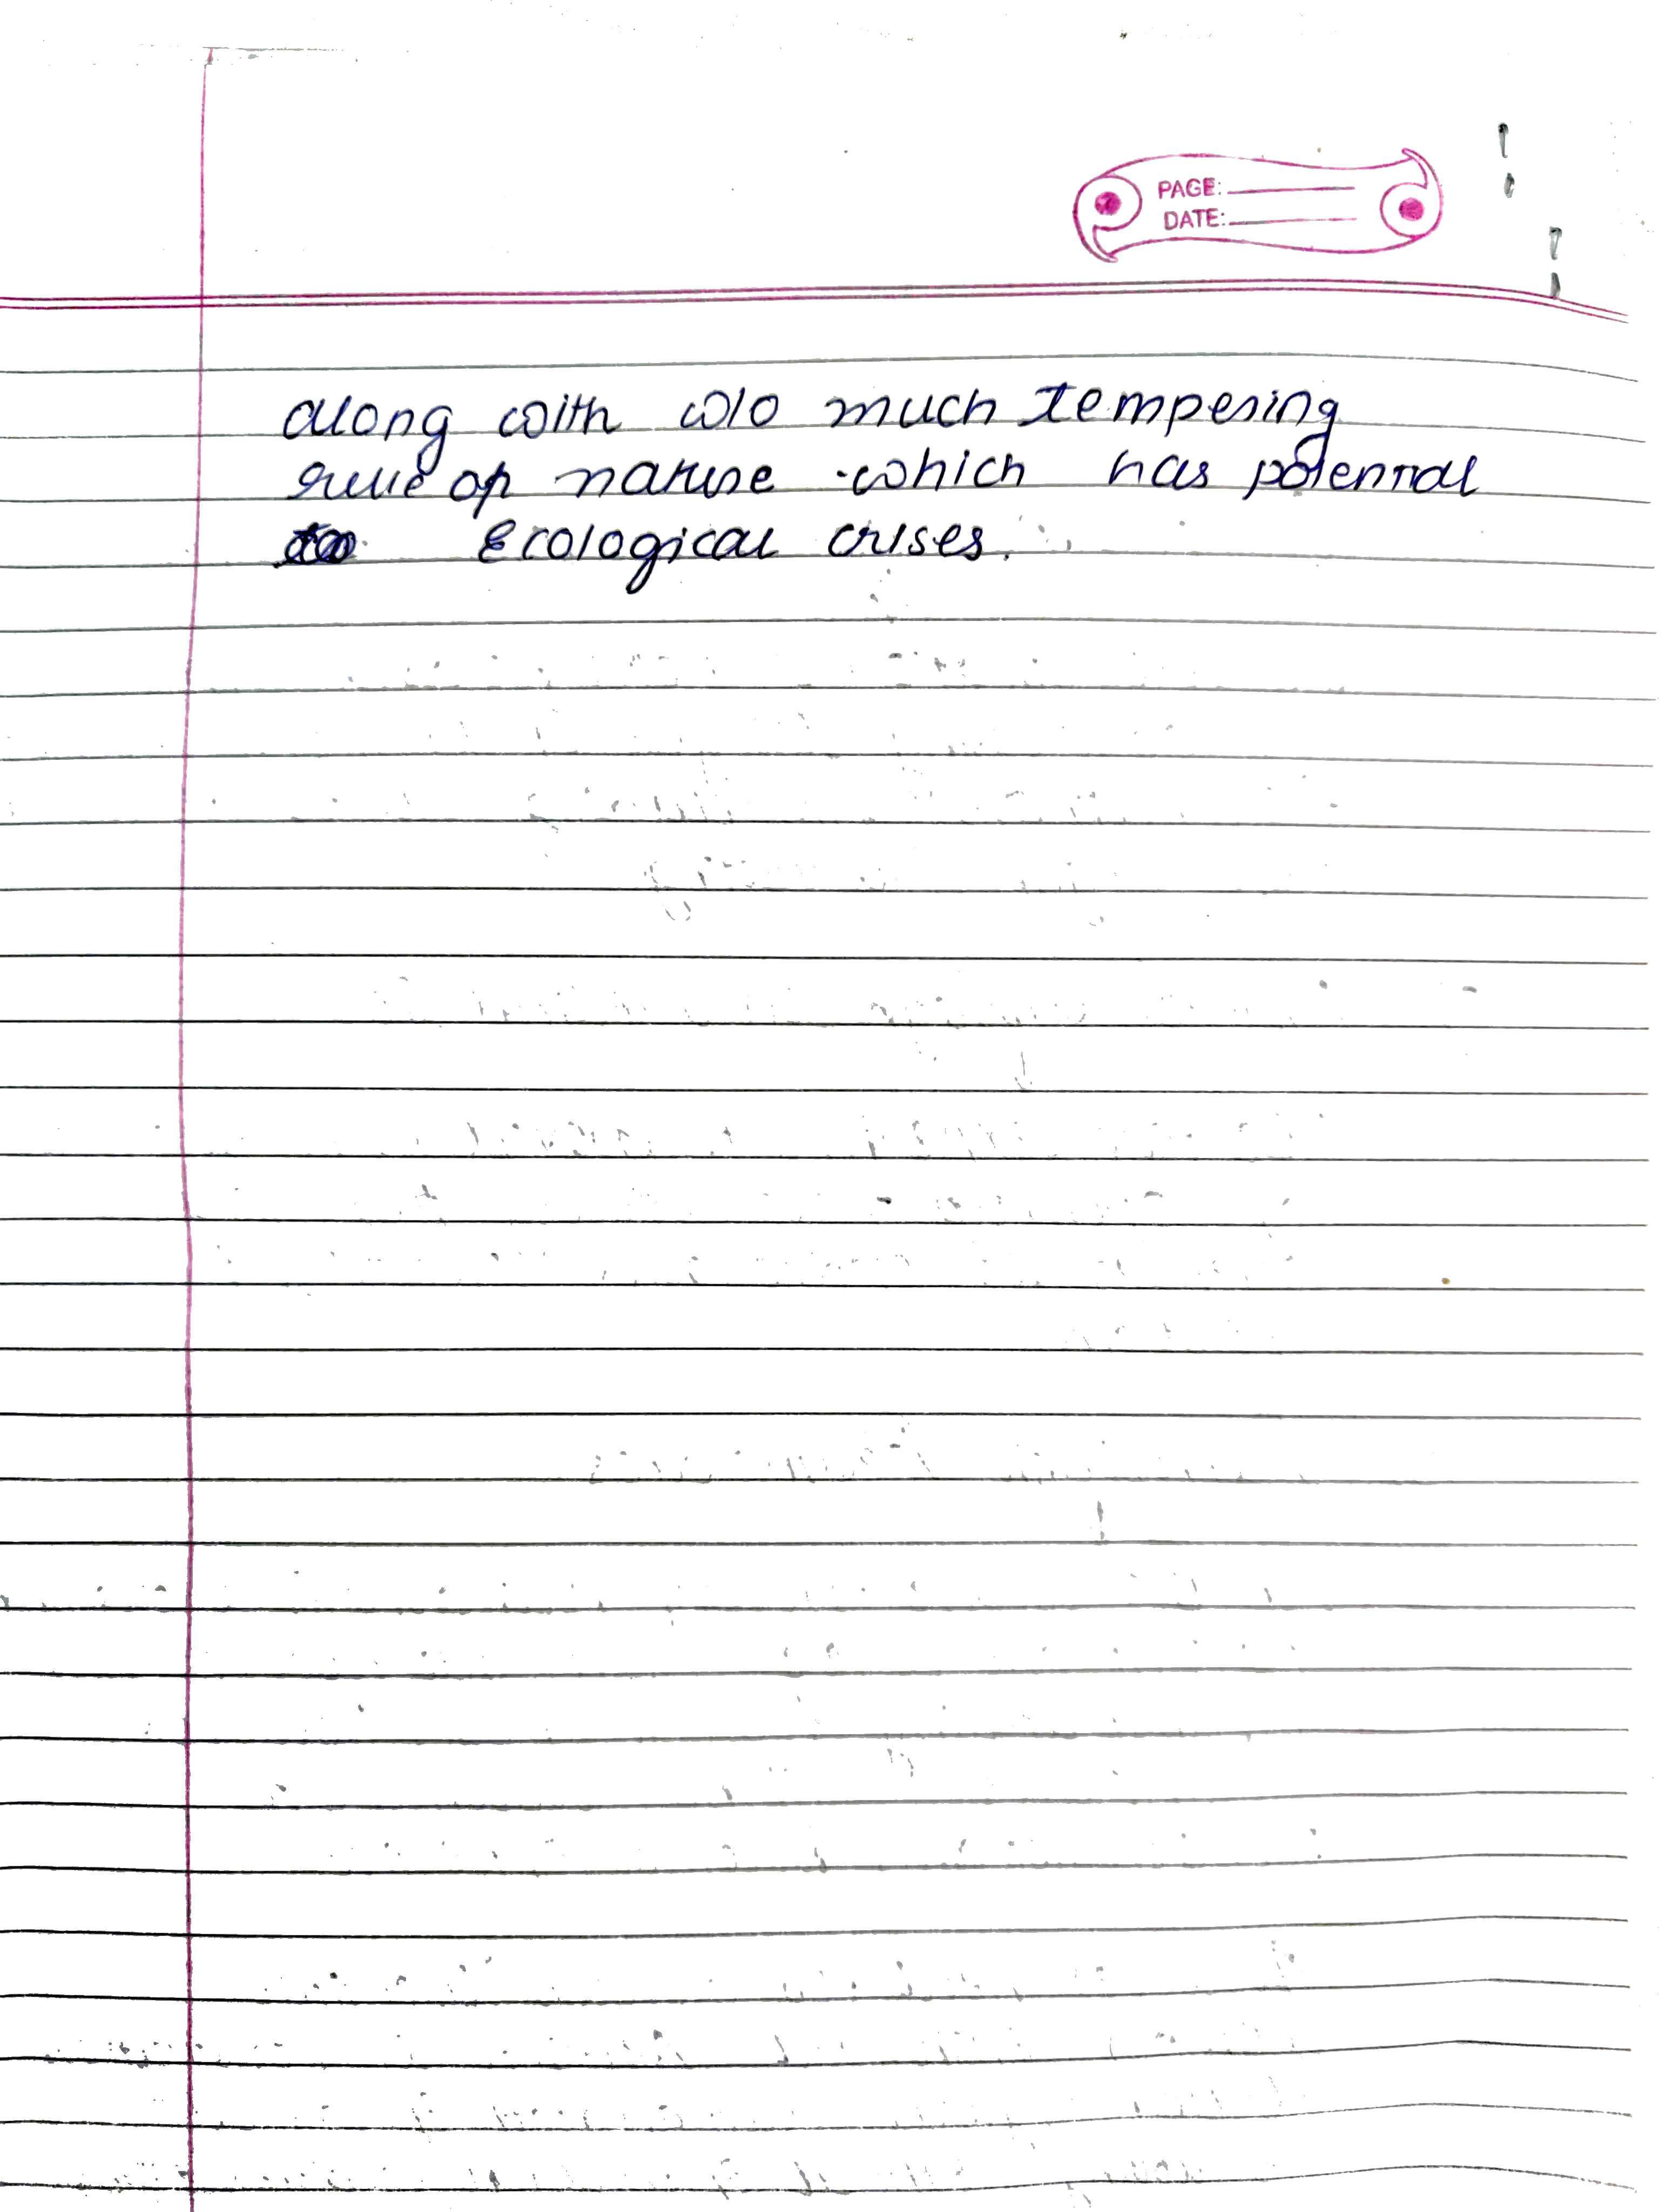 PAGE:
DATE:
along with w/o much tempering
rule of nature which has potential
Ecological crises.